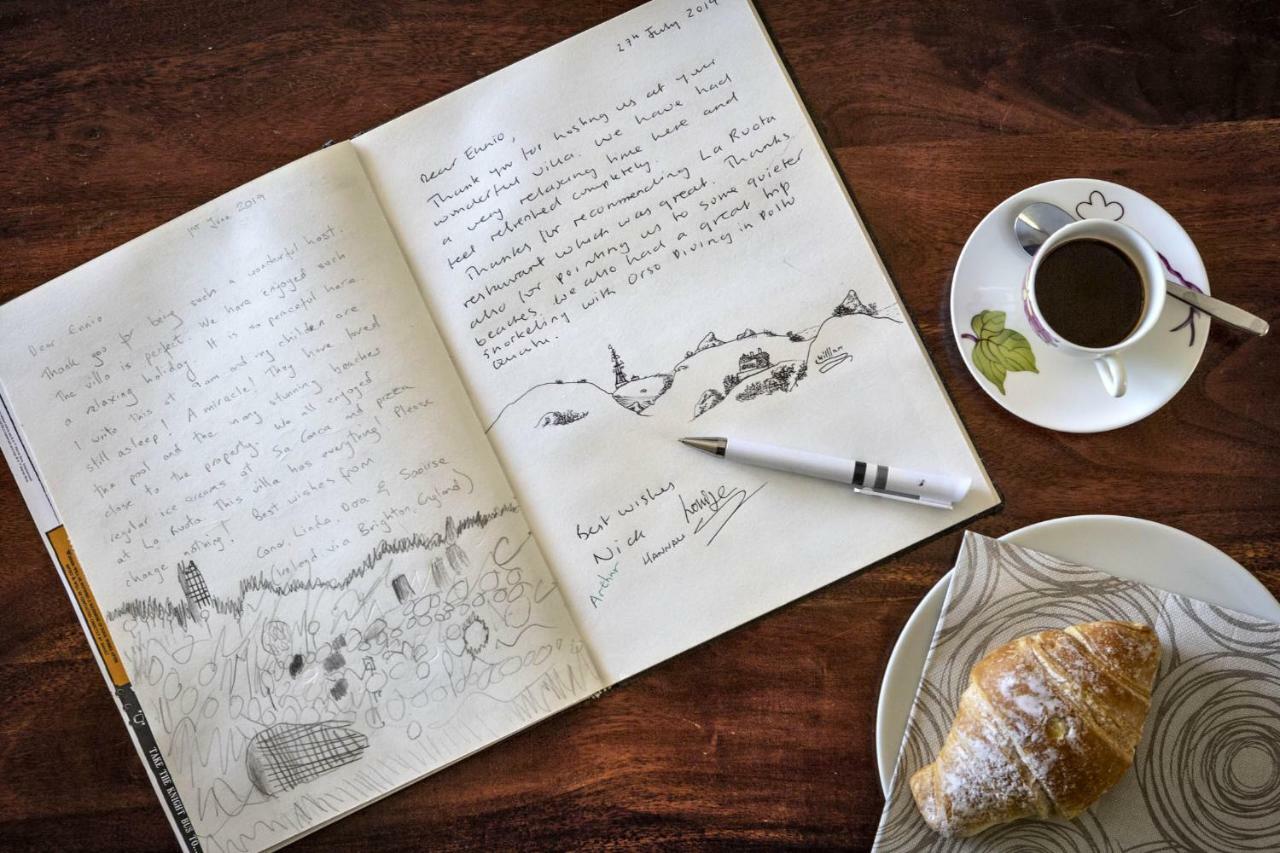 1st June 2019
Dear Ennio
Thank you for being such a wonderful host.
The villa is perfect. We have enjoyed such
relaxing holiday. It is so peaceful here.
I write this at 9am and my children are
still asleep! A miracle! They have loved
the pool and the many stunning beaches
close to the property. We all enjoyed
regular ice creams at Sa and pizza
at La Ruota. This villa has everything! Please
change nothing! Best wishes from
Conor, Linda, Dora & Saoirse
via Brighton, England)
TAKE THE KNIGHT BUS TO...
27th July 2019
Dear Ennio,
Thank you for hosting us at your
wonderful villa. We have had
a very relaxing time here and
feel refreshed completely.
Thanks for recommending La Ruota
restaurant which was great. Thanks
also for pointing us to some quieter
beaches. We also had a great trip
snorkeling with Orso Diving in Poltu
Quatu.
William
Best wishes
Nick
HANNAH
Arthur